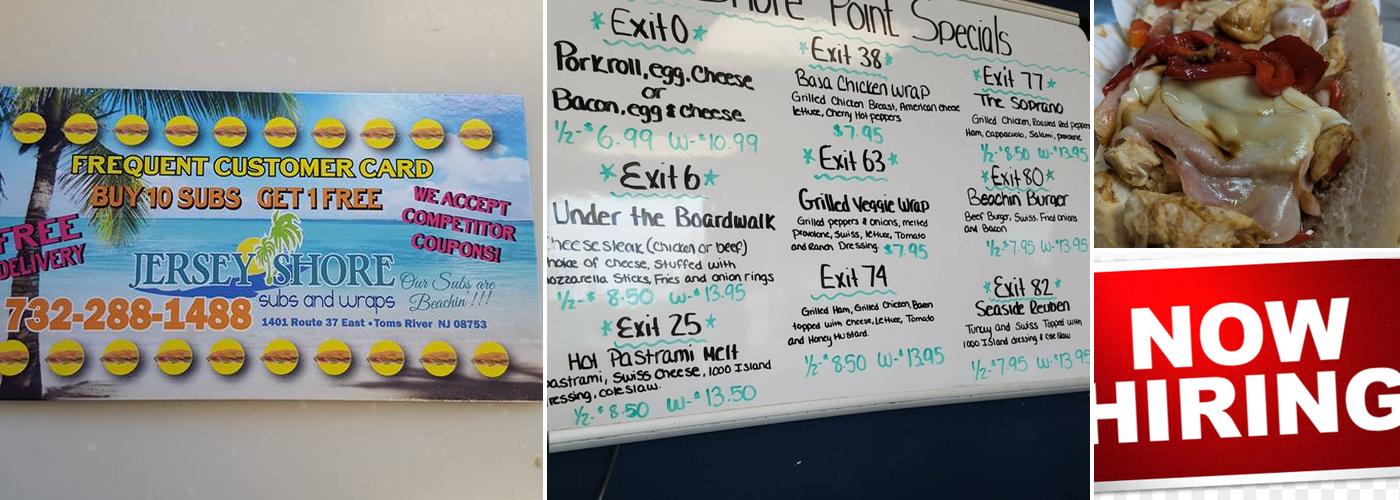 FREQUENT CUSTOMER CARD
BUY 10 SUBS GET 1 FREE
WE ACCEPT
COMPETITOR
COUPONS!
FREE
DELIVERY
JERSEY SHORE
subs and wraps
Our Subs are
Beachin'!!!
732-288-1488
1401 Route 37 East • Toms River NJ 08753
Shore Point Specials
Exit 0
Porkroll, egg, Cheese
or
Bacon, egg & cheese
1/2-$6.99 W-$10.99
Exit 6
Under the Boardwalk
Cheesesteak (Chicken or beef)
hoice of cheese, Stuffed with
mozzarella Sticks, Fries and onion rings
1/2-$8.50 W-$13.95
Exit 25
Hot Pastrami Melt
pastrami, Swiss Cheese, 1000 Island
ressing, coleslaw.
1/2-$8.50 W-$13.50
Exit 38
Basa Chicken Wrap
Grilled Chicken Breast, American cheese
lettuce, Cherry Hot peppers
$7.95
Exit 63
Grilled Veggie Wrap
Grilled peppers & onions, melted
Provolone, Swiss, lettuce, Tomato
and Ranch Dressing. $7.95
Exit 74
Grilled Ham, Grilled Chicken, Bacon
topped with Cheese, Lettuce, Tomato
and Honey Mustard.
1/2-$8.50 W-$13.95
Exit 77
The Soprano
Grilled Chicken, Roasted Red peppers
Ham, Cappacuolo, Salami, provolone
1/2-$8.50 W-$13.95
Exit 80
Beachin Burger
Beef Burger, Swiss, Fried onions
and Bacon
1/2-$7.95 W-$13.95
Exit 82
Seaside Reuben
Turkey and Swiss Topped with
1000 Island dressing & Cole Slaw
1/2-$7.95 W-$13.95
NOW
HIRING